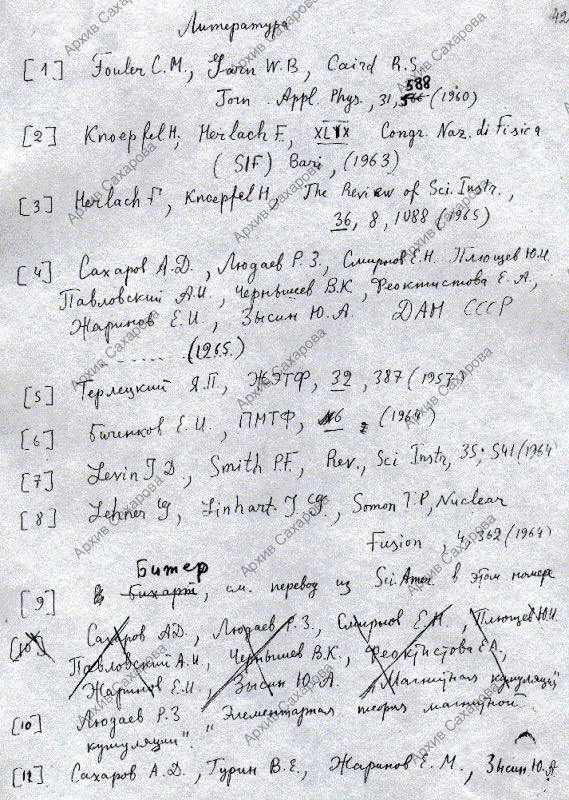 42
Литература
[1] Fouler C.M., Garn W.B, Caird R.S.
Jorn. Appl. Phys., 31, 588 (1960)
[2] Knoepfel H, Herlach F., XLIX Congr. Naz. di Fisica
(SIF) Bari, (1963)
[3] Herlach F, Knoepfel H, The Review of Sci. Instr.,
36, 8, 1088 (1965)
[4] Сахаров А.Д., Людаев Р.З., Смирнов Е.Н. Плющев Ю.И.
Павловский А.И., Чернышев В.К, Феоктистова Е.А.,
Жаринов Е.И, Зысин Ю.А. ДАН СССР
....... (1965.)
[5] Терлецкий Я.П, ЖЭТФ, 32, 387 (1957)
[6] Биченков Е.И., ПМТФ, 6, (1964)
[7] Levin J D, Smith P.F., Rev., Sci Instr, 35; 541 (1964
[8] Lehner G, Linhart J.G., Somon T.P, Nuclear
Fusion, 4, 362 (1964)
Битер
[9] В Бихарт, см. перевод из Sci. Amer. в этом номере
[10] Сахаров А.Д., Людаев Р.З., Смирнов Е.Н., Плющев Ю.И.
Павловский А.И, Чернышев В.К., Феоктистова Е.А.,
Жаринов Е.И., Зысин Ю.А. „Магнитная кумуляция"
[10] Людаев Р.З „Элементарная теория магнитной
кумуляции".
[12] Сахаров А.Д., Гурин В.Е., Жаринов Е.М., Зысин Ю.А
Архив Сахарова